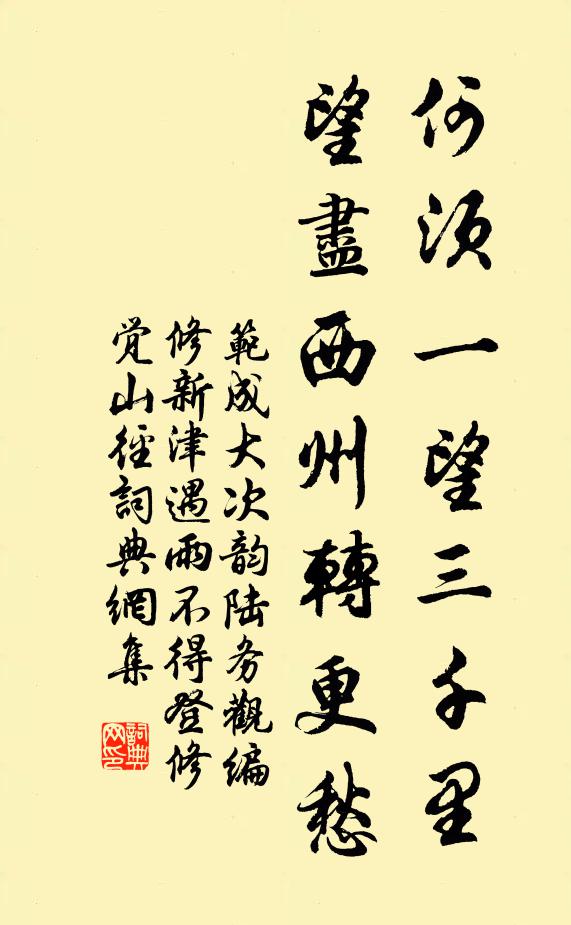 何須一望三千里
望盡西州轉更愁
範成大次韵陆务觀编
修新津遇雨不得登修
觉山徑詞典網集
詞典
网印